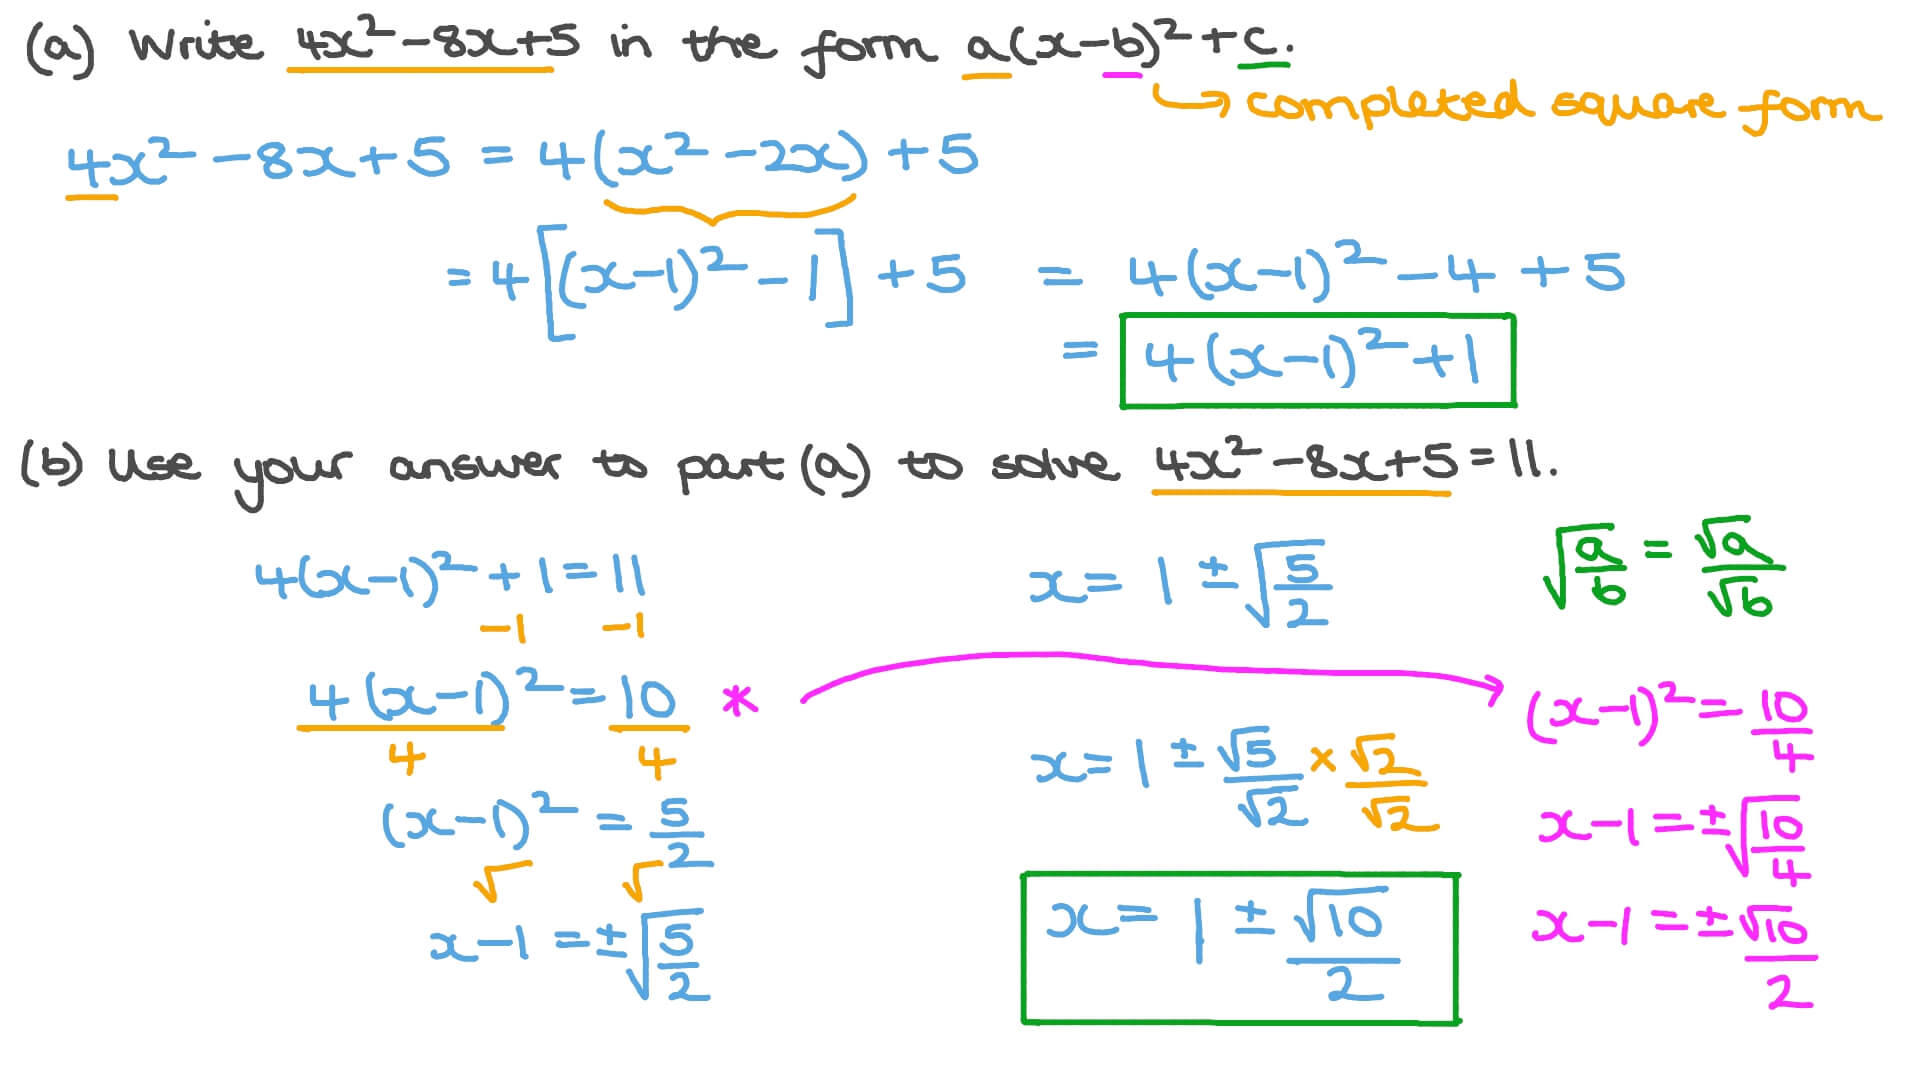 (a) Write 4x²-8x+5 in the form a(x-b)²+c.
↳ completed square form
4x²-8x+5 = 4(x²-2x)+5
= 4[(x-1)²-1]+5 = 4(x-1)²-4+5
= 4(x-1)²+1
(b) Use your answer to part (a) to solve 4x²-8x+5=11.
4(x-1)²+1=11
-1 -1
4(x-1)²=10 *
4 4
(x-1)² = 5/2
√ √
x-1 = ±√(5/2)
x = 1 ± √(5/2)
x = 1 ± √5/√2 × √2/√2
x = 1 ± √10/2
√(a/b) = √a/√b
(x-1)² = 10/4
x-1 = ±√(10/4)
x-1 = ±√10/2